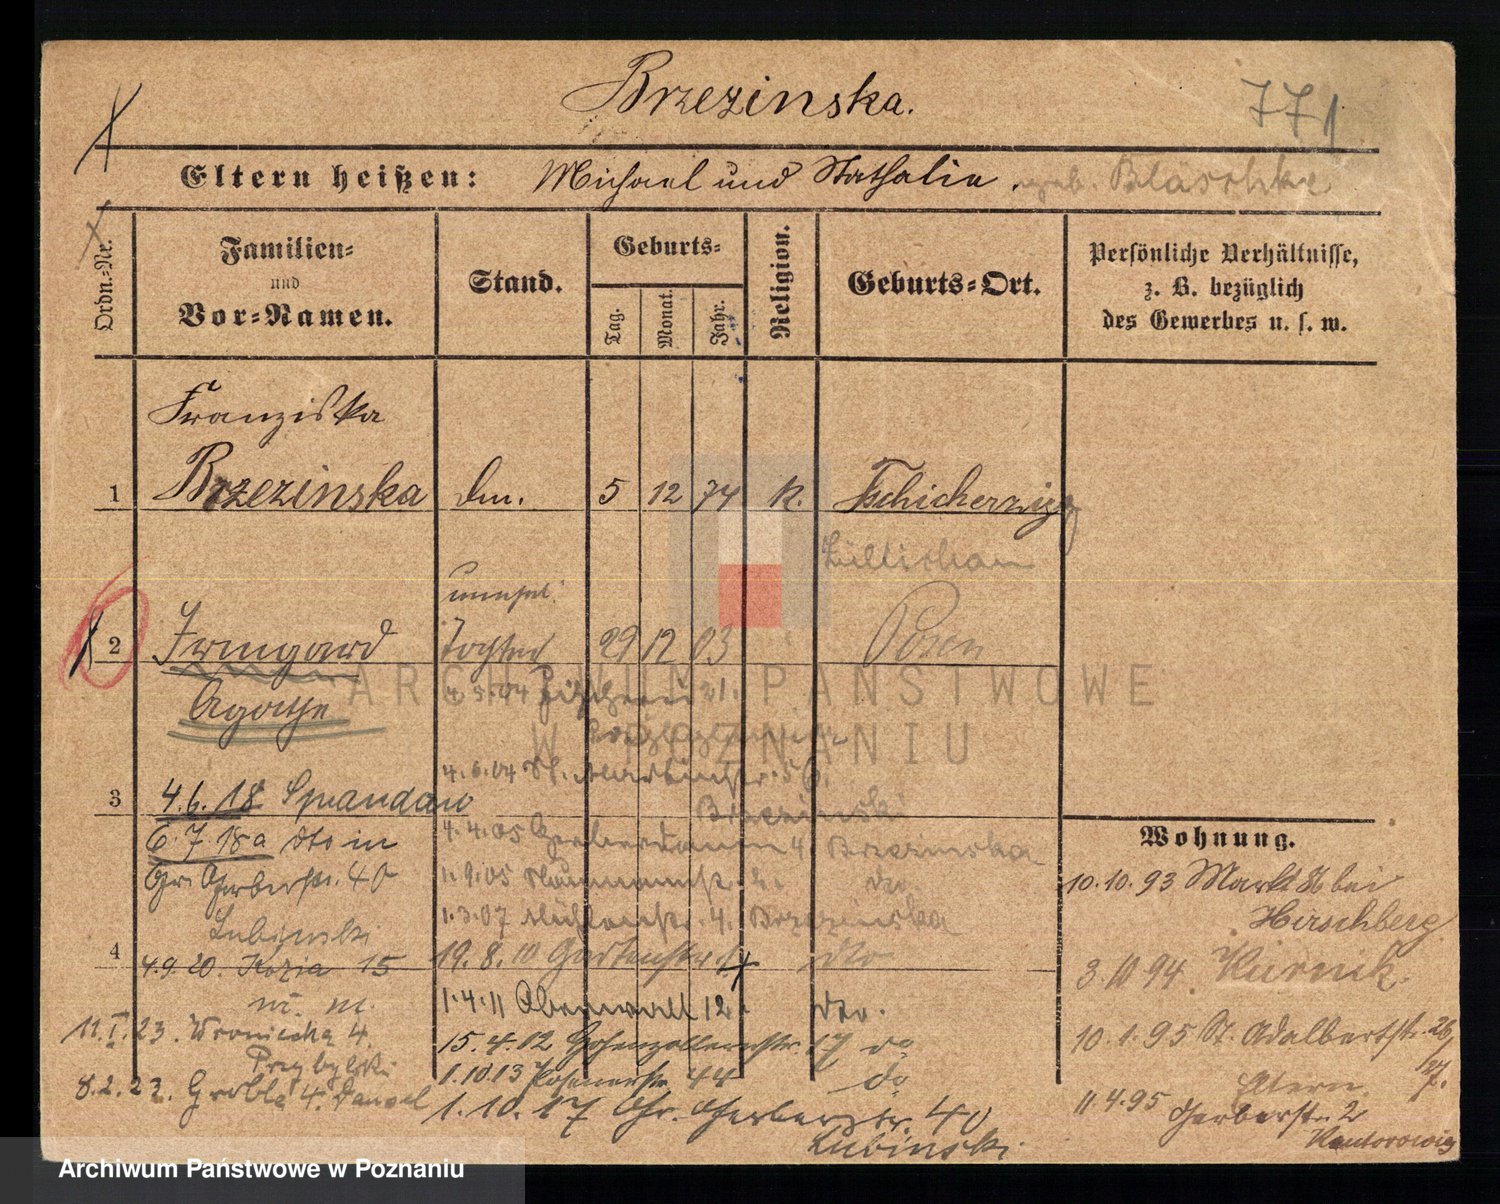 Brzezinska.
771
Eltern heißen: Michael und Nathalie . geb. Bläschke
Ordn.-Nr.
Familien-
und
Vor-Namen.
Stand.
Geburts-
Tag.
Monat.
Jahr.
Religion.
Geburts-Ort.
Persönliche Verhältnisse,
z. B. bezüglich
des Gewerbes u. s. w.
Franziska
1 Brzezinska 5 12 74 K. Tschicherzig
Züllichau
unehel.
2 Irmgard Tochter 29 12 03 Posen
Agathe
4.5.04
4.6.04 St. Martinstr. 56.
3 4.6.18 Spandau
Brzezinski
6.7.18 a dto in
4.4.05 Gerberdamm 4 Brzezinska
Gr. Gerberstr. 40
1.9.05 Naumannstr. do.
Lubinski
1.3.07 Mühlenstr. 4. Brzezinska
4 4.9.20. Kozia 15
19.8.10 Gartenstr. dto
w. m.
1.4.11 12. dto.
11.I.23. Wroniecka 4.
Przybylski
15.4.12 Hohenzollernstr. 17 do
8.2.23. Grobla 4.
1.10.13 Posenerstr. 44 do
1.10.17 Gr. Gerberstr. 40
Lubinski
Wohnung.
10.10.93 Markt 86 bei
Hirschberg
3.10 94. Kurnik.
10.1.95 St. Adalbertstr. 26/27.
Eltern
11.4.95 Gerberstr. 2
Kantorowicz
ARCHIWUM PAŃSTWOWE
W POZNANIU
Archiwum Państwowe w Poznaniu